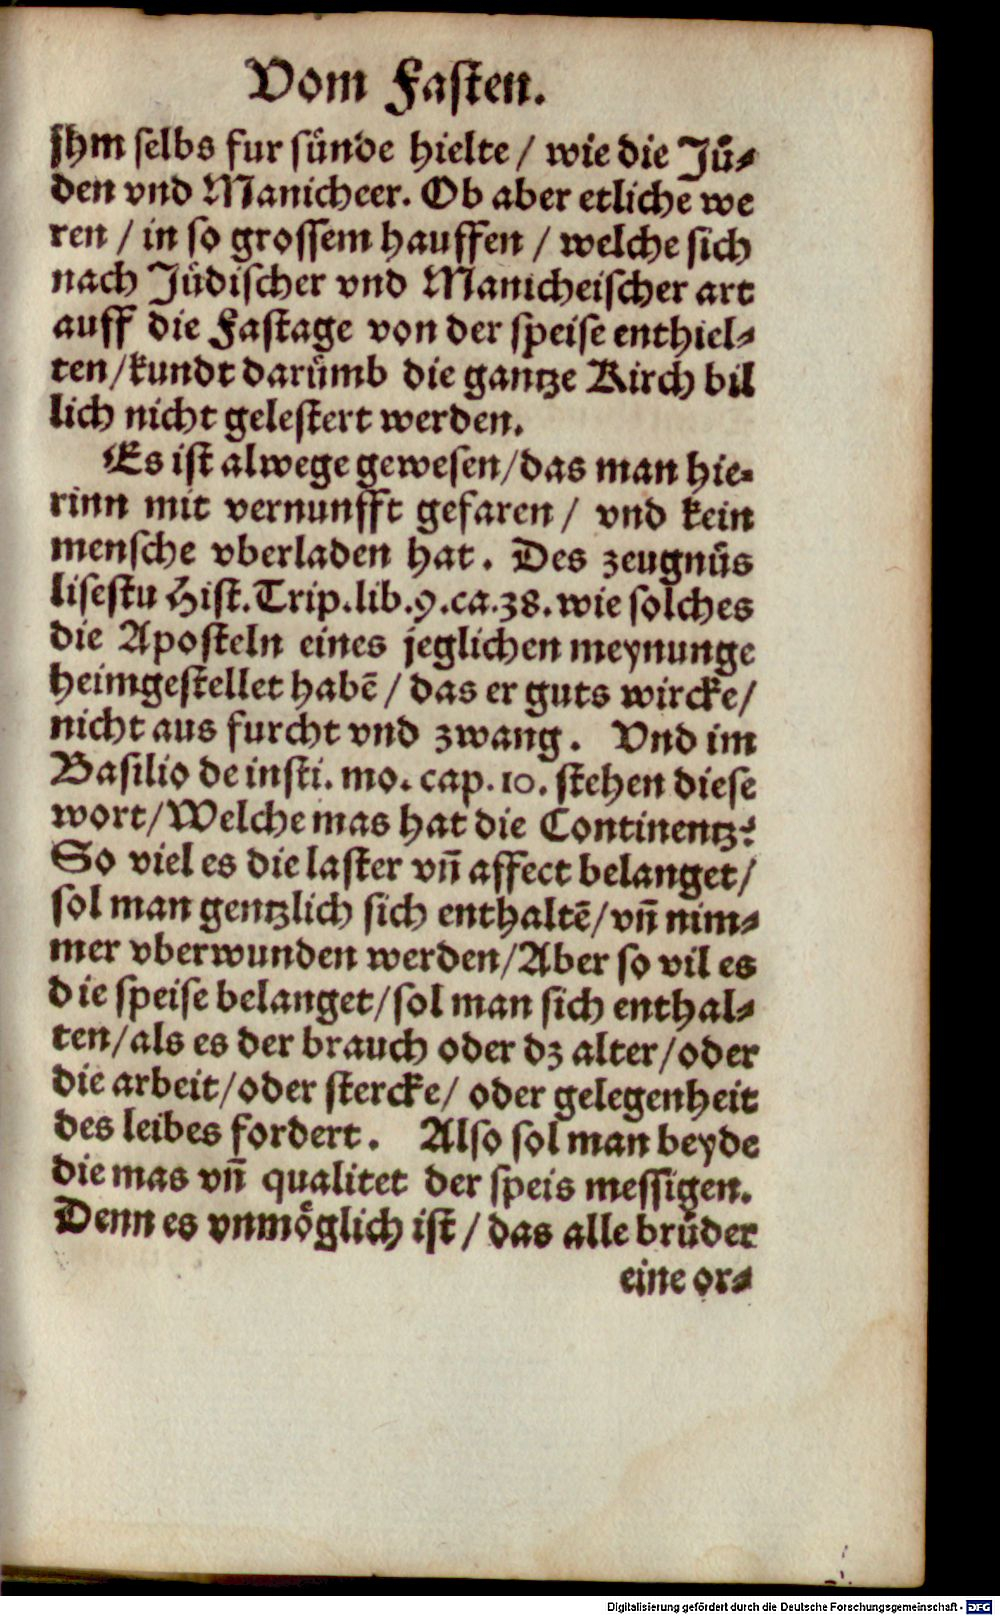 Vom Fasten.
jhm selbs fur sünde hielte / wie die Jü-
den vnd Manicheer. Ob aber etliche we
ren / in so grossem hauffen / welche sich
nach Jüdischer vnd Manicheischer art
auff die Fastage von der speise enthiel-
ten/kundt darümb die gantze Kirch bil
lich nicht gelestert werden.
Es ist alwege gewesen/das man hie-
rinn mit vernunfft gefaren / vnd kein
mensche vberladen hat. Des zeugnüs
lisestu Hist. Trip. lib. 9. ca. 38. wie solches
die Aposteln eines jeglichen meynunge
heimgestellet habē / das er guts wircke/
nicht aus furcht vnd zwang. Vnd im
Basilio de insti. mo. cap. 10. stehen diese
wort/Welche mas hat die Continentz?
So viel es die laster vñ affect belanget/
sol man gentzlich sich enthaltē/vñ nim-
mer vberwunden werden/Aber so vil es
die speise belanget/sol man sich enthal-
ten/als es der brauch oder dz alter/oder
die arbeit/oder stercke/ oder gelegenheit
des leibes fordert. Also sol man beyde
die mas vñ qualitet der speis messigen.
Denn es vnmöglich ist / das alle brüder
eine or-
Digitalisierung gefördert durch die Deutsche Forschungsgemeinschaft - DFG